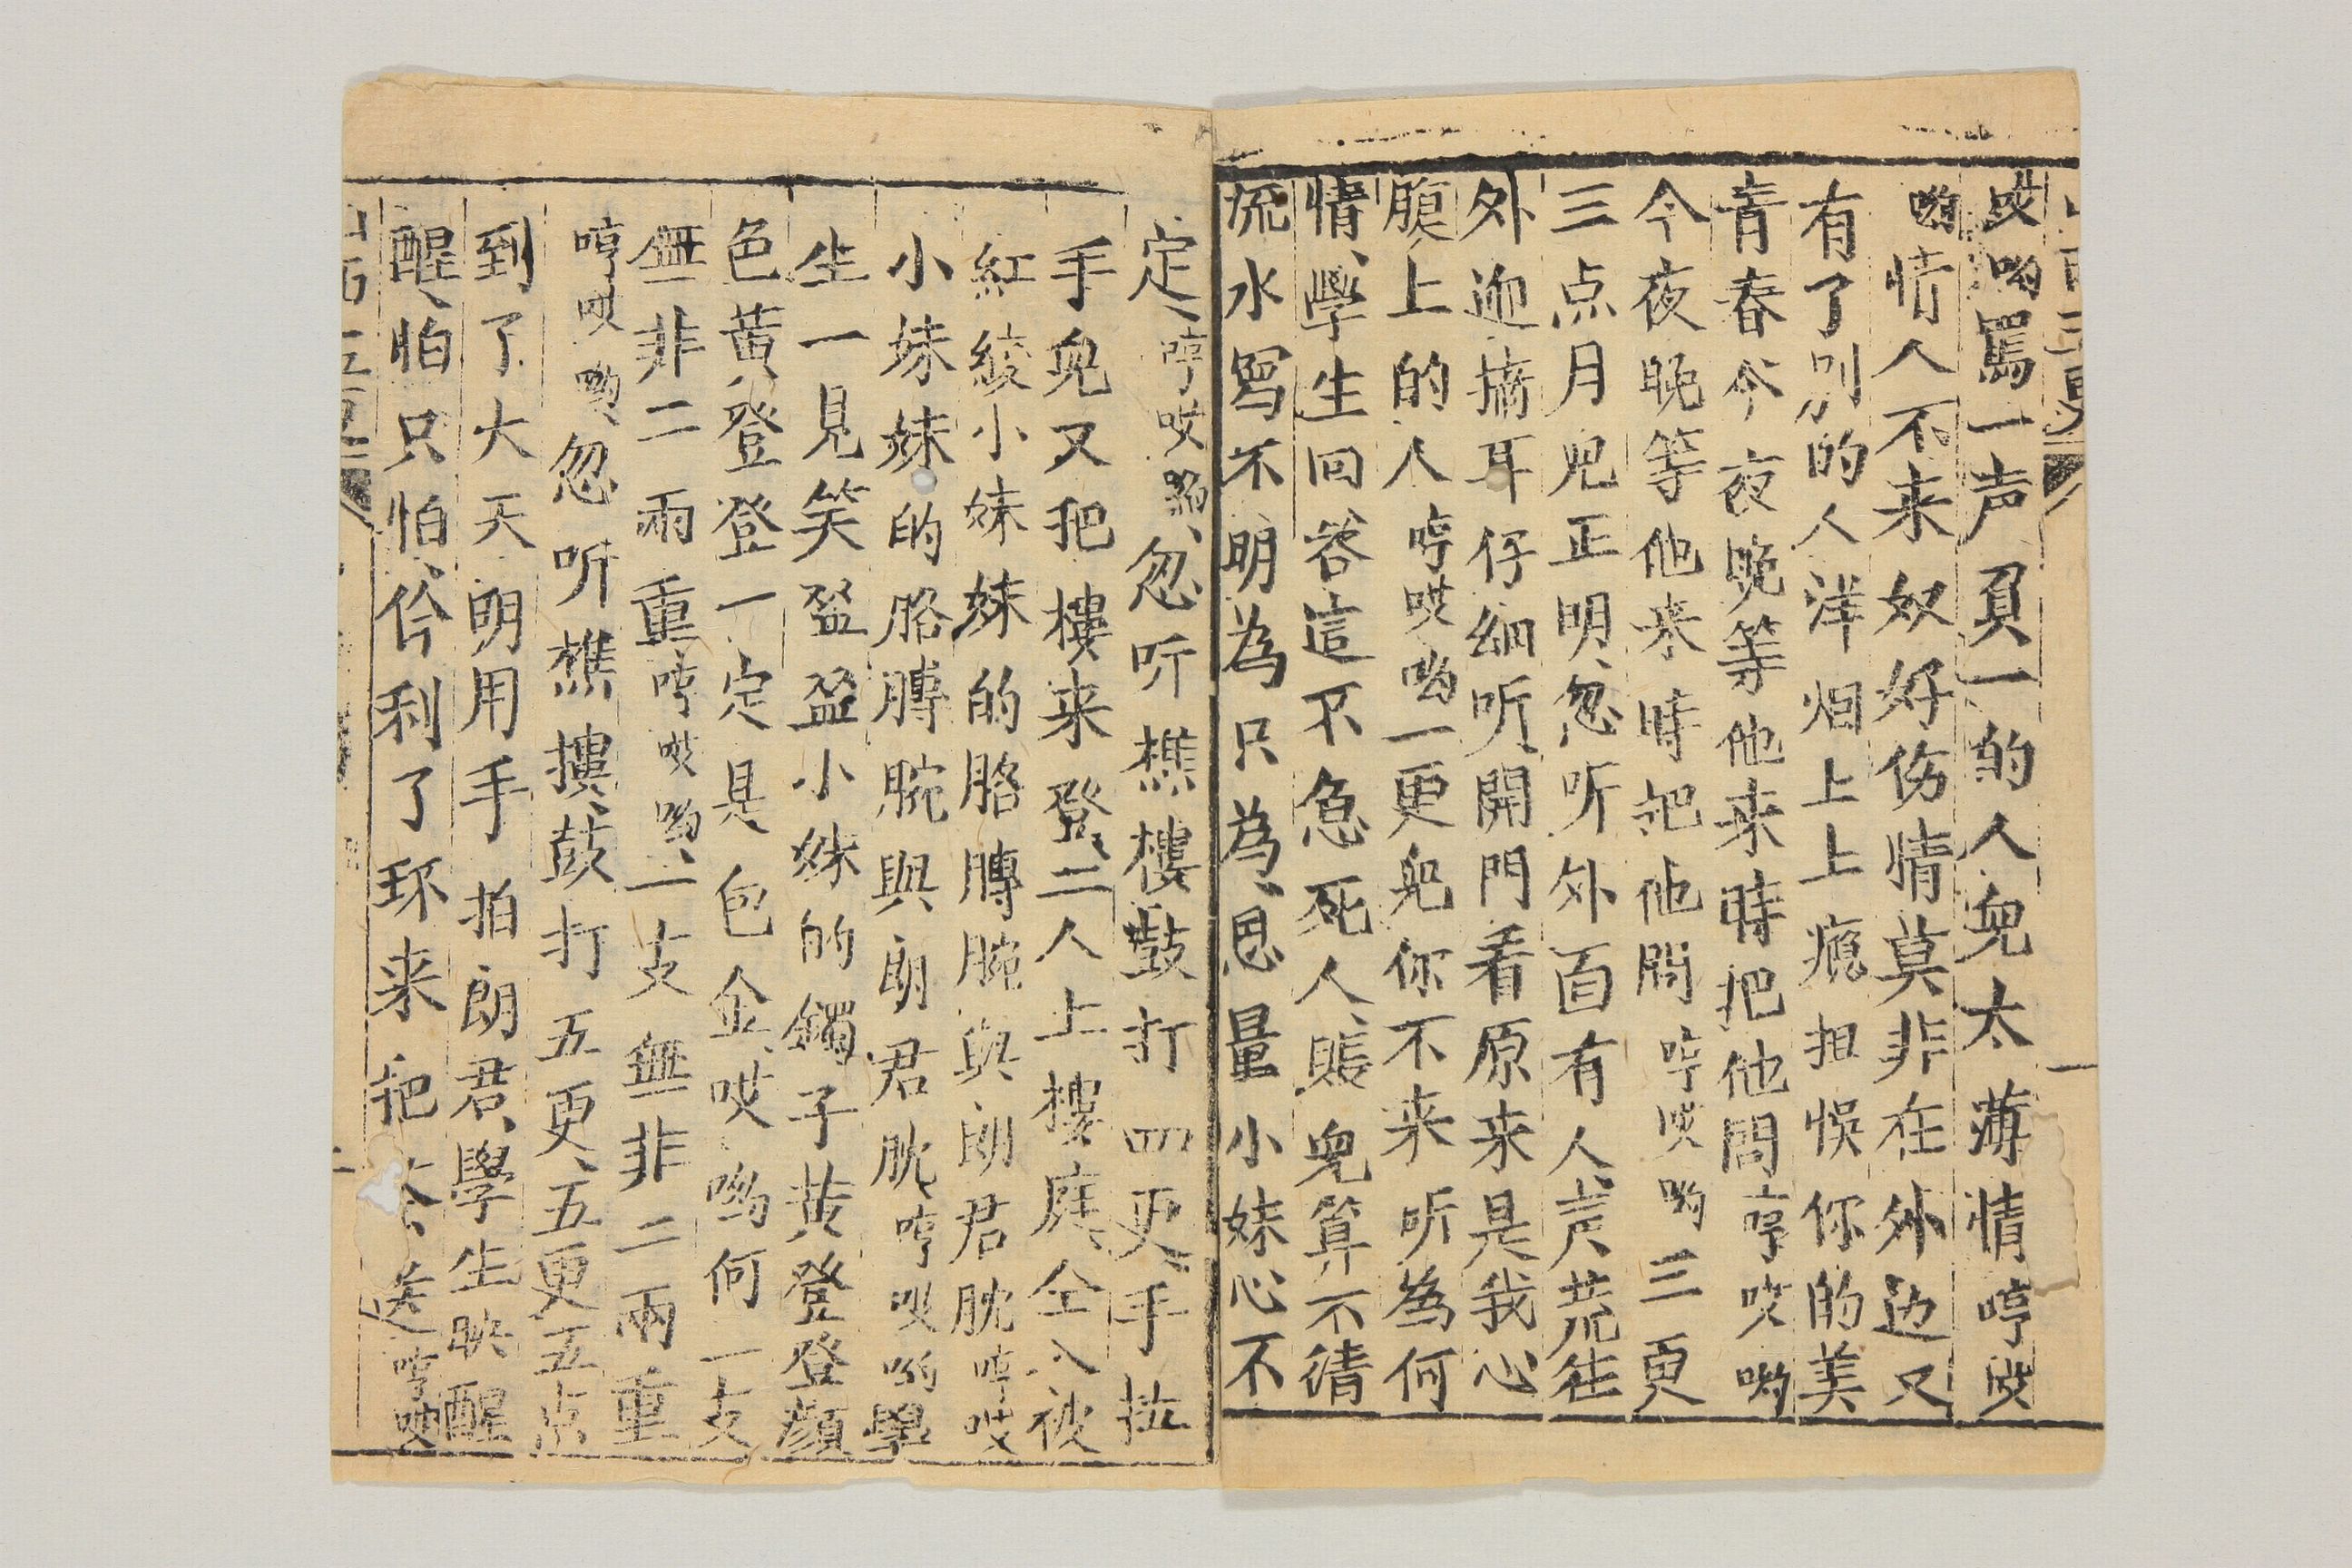 哎哟罵一声負一的人兜太薄情哼哎
哟情人不来奴好伤情莫非在外边又
有了别的人洋烟上上癮担悞你的美
青春今夜晚等他来時把他問哼哎哟
今夜晚等他来時把他問哼哎哟三更
三点月兜正明忽听外面有人声荒往
外迎摘耳仔細听開門看原来是我心
腹上的人哼哎哟一更兜你不来听為何
情學生回答這不急死人賬兜算不清
流水寫不明為只為恩量小妹心不
定哼哎哟忽听樵樓鼓打四更手拉
手兜又把樓来登二人上樓庭仝入被
紅綾小妹妹的胳膊腕與郎君肬哼哎
小妹妹的胳膊腕與郎君肬哼哎哟學
生一見笑盈盈小妹的鐲子黄登登顔
色黄登登一定是包金哎哟何一支
無非二兩重哼哎哟一支無非二兩重
哼哎哟忽听樵摟鼓打五更五更五点
到了大天明用手拍郎君學生映醒
醒怕只怕伶利了环来把茶送哼哎